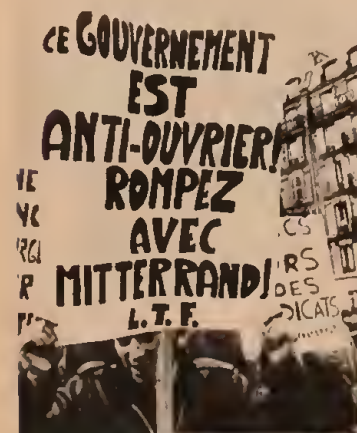 CE GOUVERNEMENT
EST
ANTI-OUVRIER!
ROMPEZ
AVEC
MITTERRAND!
L.T.F.
RS
DES